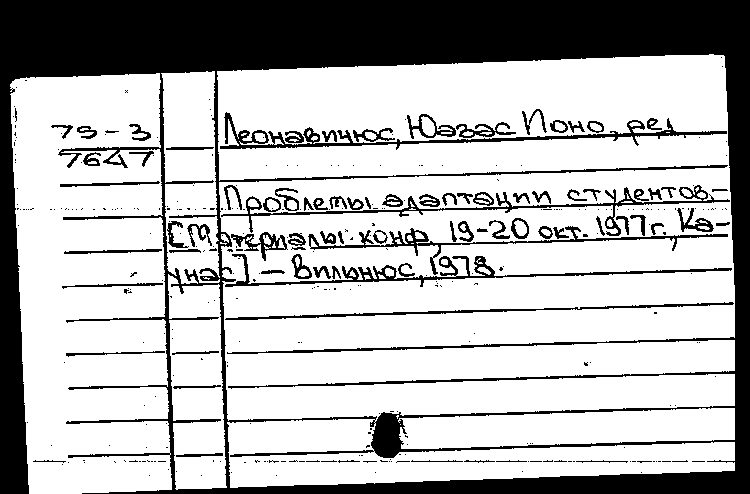 79-3
7647
Леонавичюс, Юазас Ионо, ред.
Проблемы адаптации студентов.-
[Материалы конф., 19-20 окт. 1977 г., Ка-
унас]. - Вильнюс, 1978.